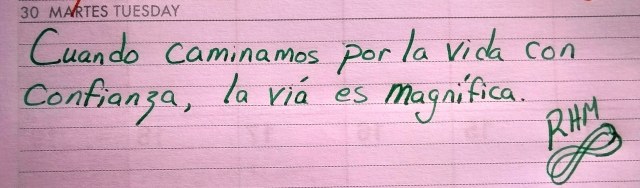 30 MARTES TUESDAY
Cuando caminamos por la vida con
confianza, la viá es magnífica.
RHM